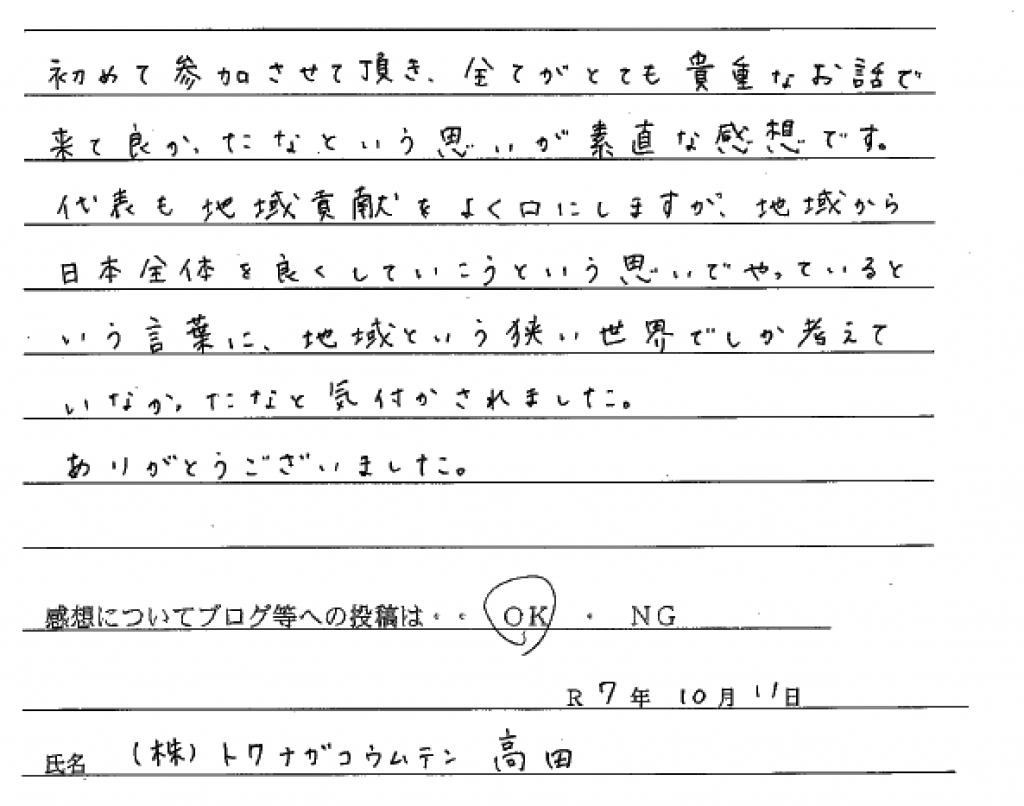 初めて参加させて頂き、全てがとても貴重なお話で
来て良かったなという思いが素直な感想です。
代表も地域貢献をよく口にしますが、地域から
日本全体を良くしていこうという思いでやっていると
いう言葉に、地域という狭い世界でしか考えて
いなかったなと気付かされました。
ありがとうございました。
感想についてブログ等への投稿は・・ OK ・ NG
R 7 年 10 月 11 日
氏名 (株)トワナガコウムテン 高田